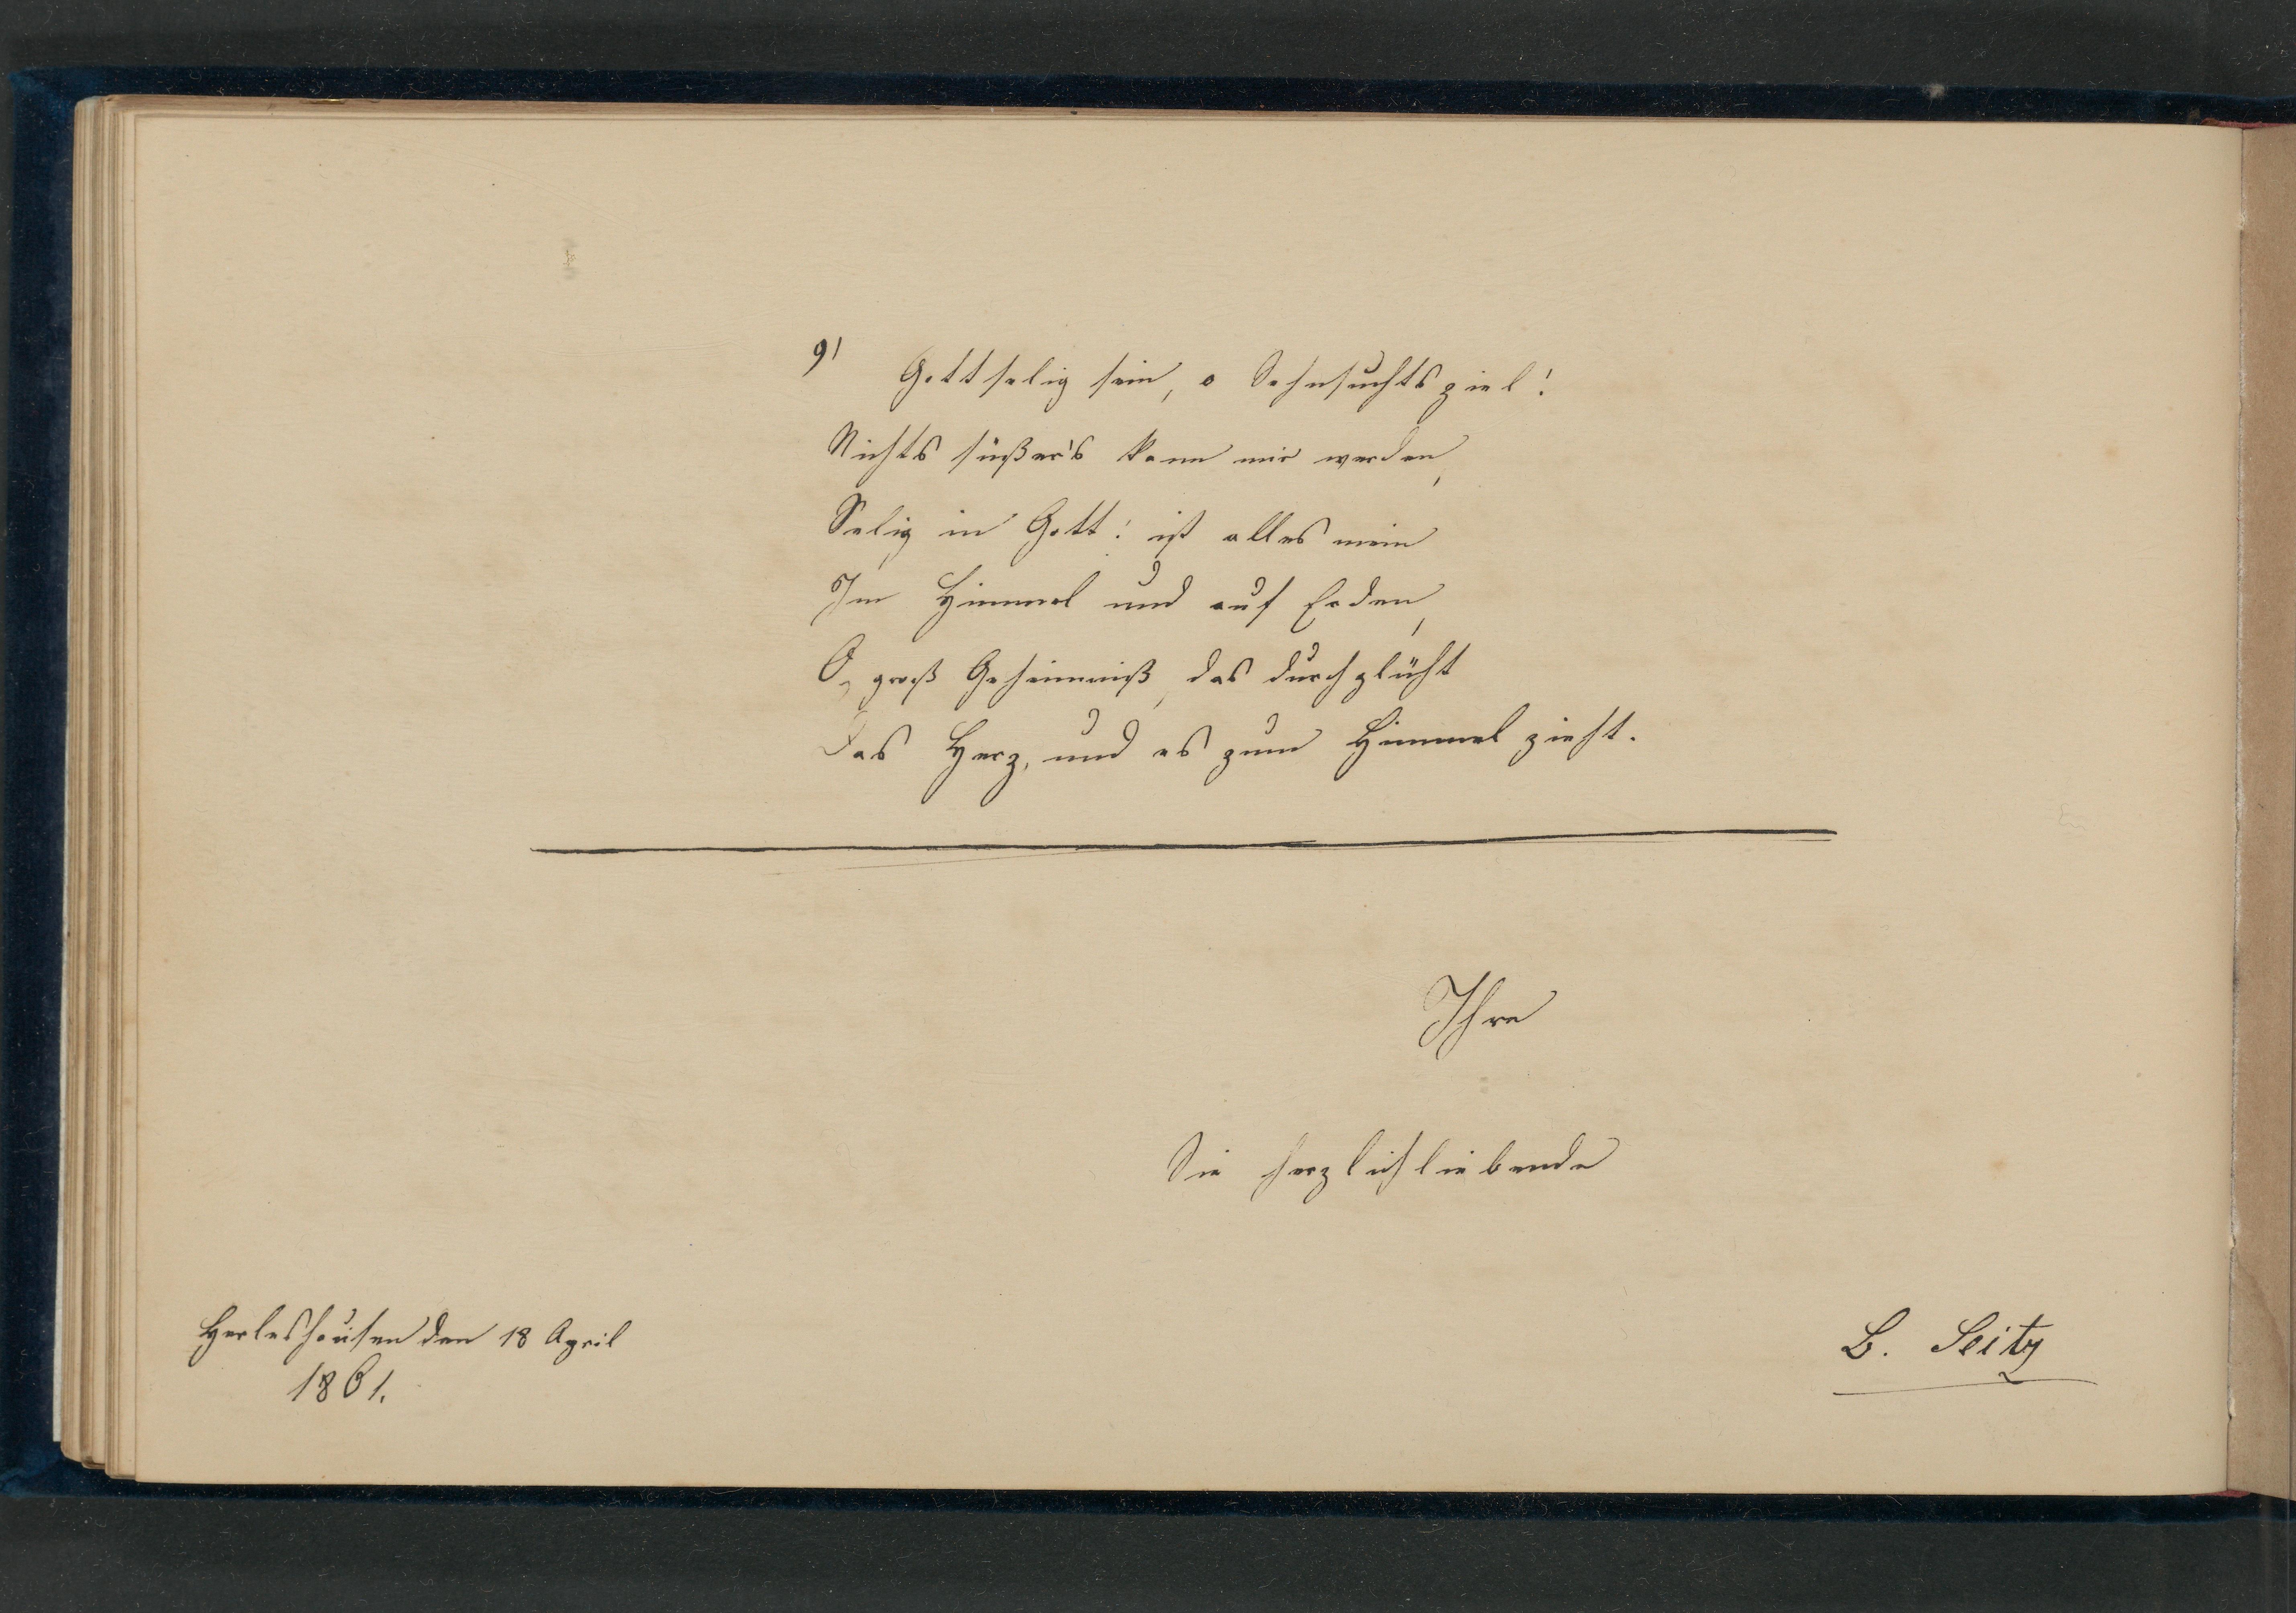 9) Gottselig sein, o Sehnsuchtsziel!
Nichts süßer's kann mir werden,
Selig in Gott! ist alles mein
Im Himmel und auf Erden,
O, groß Geheimniß, das durchglüht
Das Herz, und es zum Himmel zieht.
Ihre
Sie herzlich liebende
Herleshausen den 18 April
1861.
B. Seitz